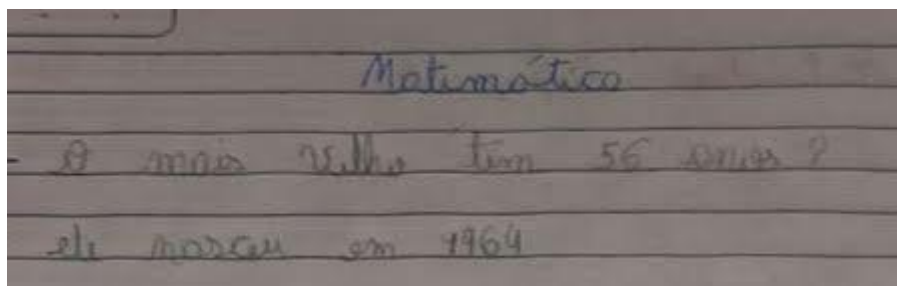 Matemática
- O mais velho tem 56 anos?
ele nasceu em 1964